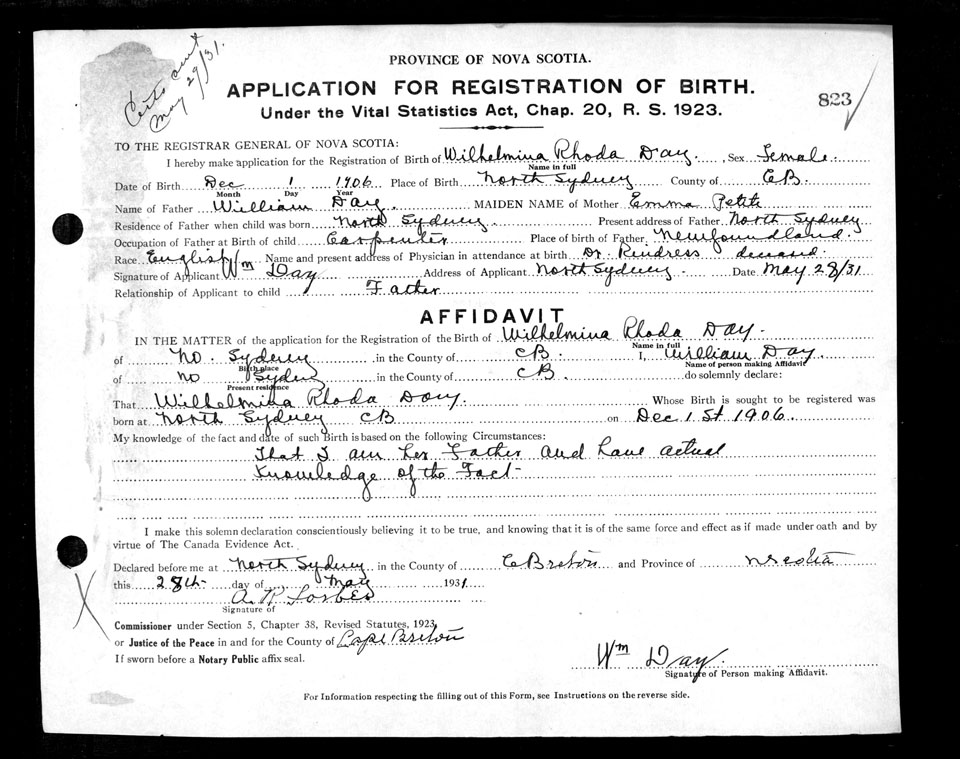 Certs cut
May 29/31.
PROVINCE OF NOVA SCOTIA.
APPLICATION FOR REGISTRATION OF BIRTH.
823
Under the Vital Statistics Act, Chap. 20, R. S. 1923.
TO THE REGISTRAR GENERAL OF NOVA SCOTIA:
I hereby make application for the Registration of Birth of Wilhelmina Rhoda Day. Sex Female.
Name in full
Date of Birth Dec 1 1906 Place of Birth North Sydney County of CB.
Month Day Year
Name of Father William Day. MAIDEN NAME of Mother Emma Petite
Residence of Father when child was born North Sydney. Present address of Father North Sydney
Occupation of Father at Birth of child Carpenter Place of birth of Father Newfoundland.
Race English Name and present address of Physician in attendance at birth Dr. deceased
Signature of Applicant Wm Day Address of Applicant North Sydney. Date May 28/31
Relationship of Applicant to child Father
AFFIDAVIT
IN THE MATTER of the application for the Registration of the Birth of Wilhelmina Rhoda Day.
Name in full
of No. Sydney in the County of CB. I, William Day.
Birth place Name of person making Affidavit
of No Sydney in the County of CB. do solemnly declare:
Present residence
That Wilhelmina Rhoda Day. Whose Birth is sought to be registered was
born at North Sydney CB on Dec 1 St 1906.
My knowledge of the fact and date of such Birth is based on the following Circumstances:
That I am her Father and have actual
Knowledge of the Fact
I make this solemn declaration conscientiously believing it to be true, and knowing that it is of the same force and effect as if made under oath and by
virtue of The Canada Evidence Act.
Declared before me at North Sydney in the County of C Breton and Province of N Scotia
this 28th day of May 1931
A. R. Forbes
Signature of
Commissioner under Section 5, Chapter 38, Revised Statutes, 1923,
or Justice of the Peace in and for the County of Cape Breton
If sworn before a Notary Public affix seal.
Wm Day.
Signature of Person making Affidavit.
For Information respecting the filling out of this Form, see Instructions on the reverse side.